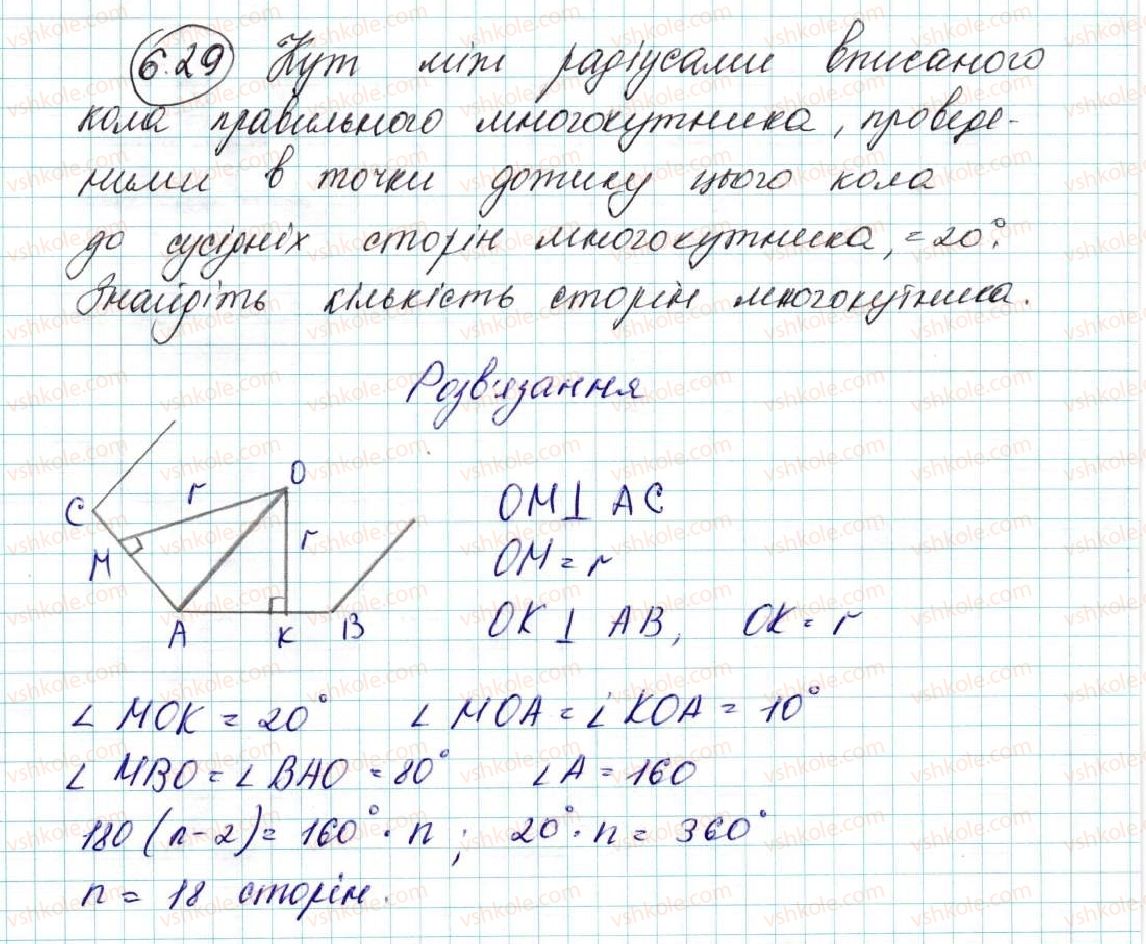 6.29 Кут між радіусами вписаного
кола правильного многокутника, проведе-
ними в точки дотику цього кола
до сусідніх сторін многокутника, = 20°.
Знайдіть кількість сторін многокутника.
Розв'язання
C M A K B O r r
OM ⊥ AC
OM = r
OK ⊥ AB, OK = r
∠ MOK = 20° ∠ MOA = ∠ KOA = 10°
∠ MBO = ∠ BAO = 80° ∠ A = 160
180 (n-2) = 160° · n ; 20° · n = 360°
n = 18 сторін.
vshkole.com